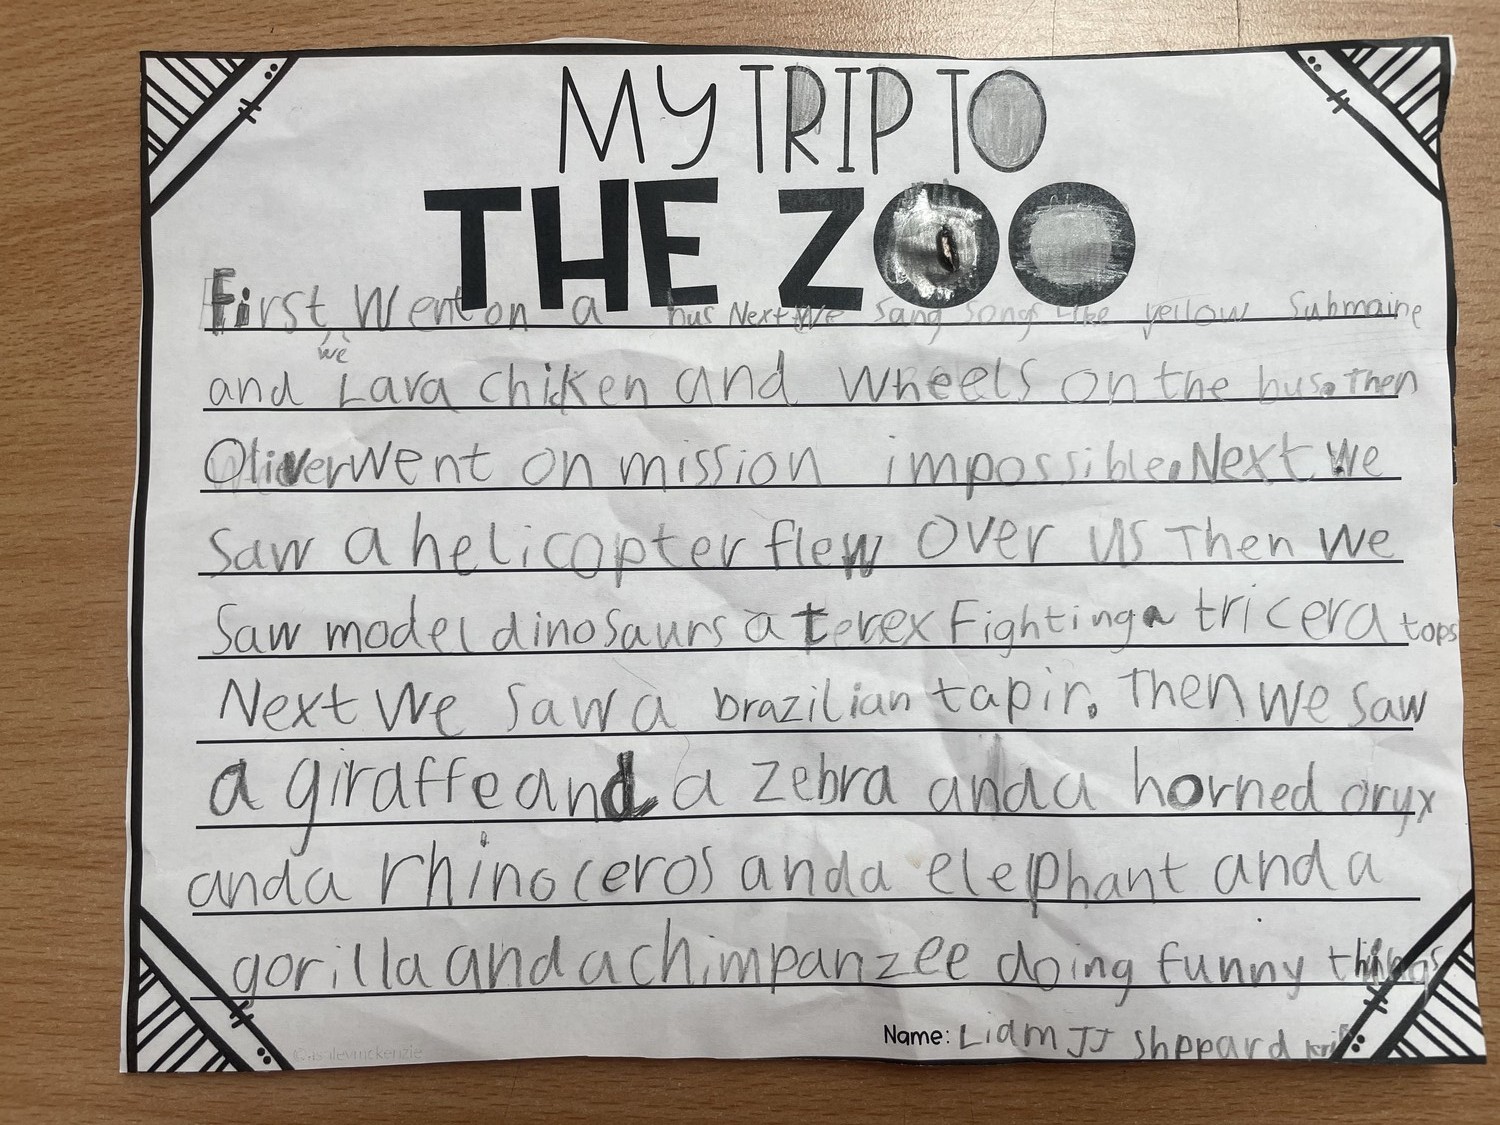 MY TRIP TO
THE ZOO
First Went on a bus Next We Sang Songs Like yellow Submaine
we
and Lava Chiken and Wheels On the bus. Then
Oliver Went on mission impossible. Next We
Saw a helicopter flew Over us Then We
Saw model dinosaurs a terex Fighting a tricera tops
Next We Saw a brazilian tapir. Then We Saw
a giraffe and a zebra and a horned oryx
and a rhinoceros and a elephant and a
gorilla and a chimpanzee doing funny things
Name: Liam JJ Shppard